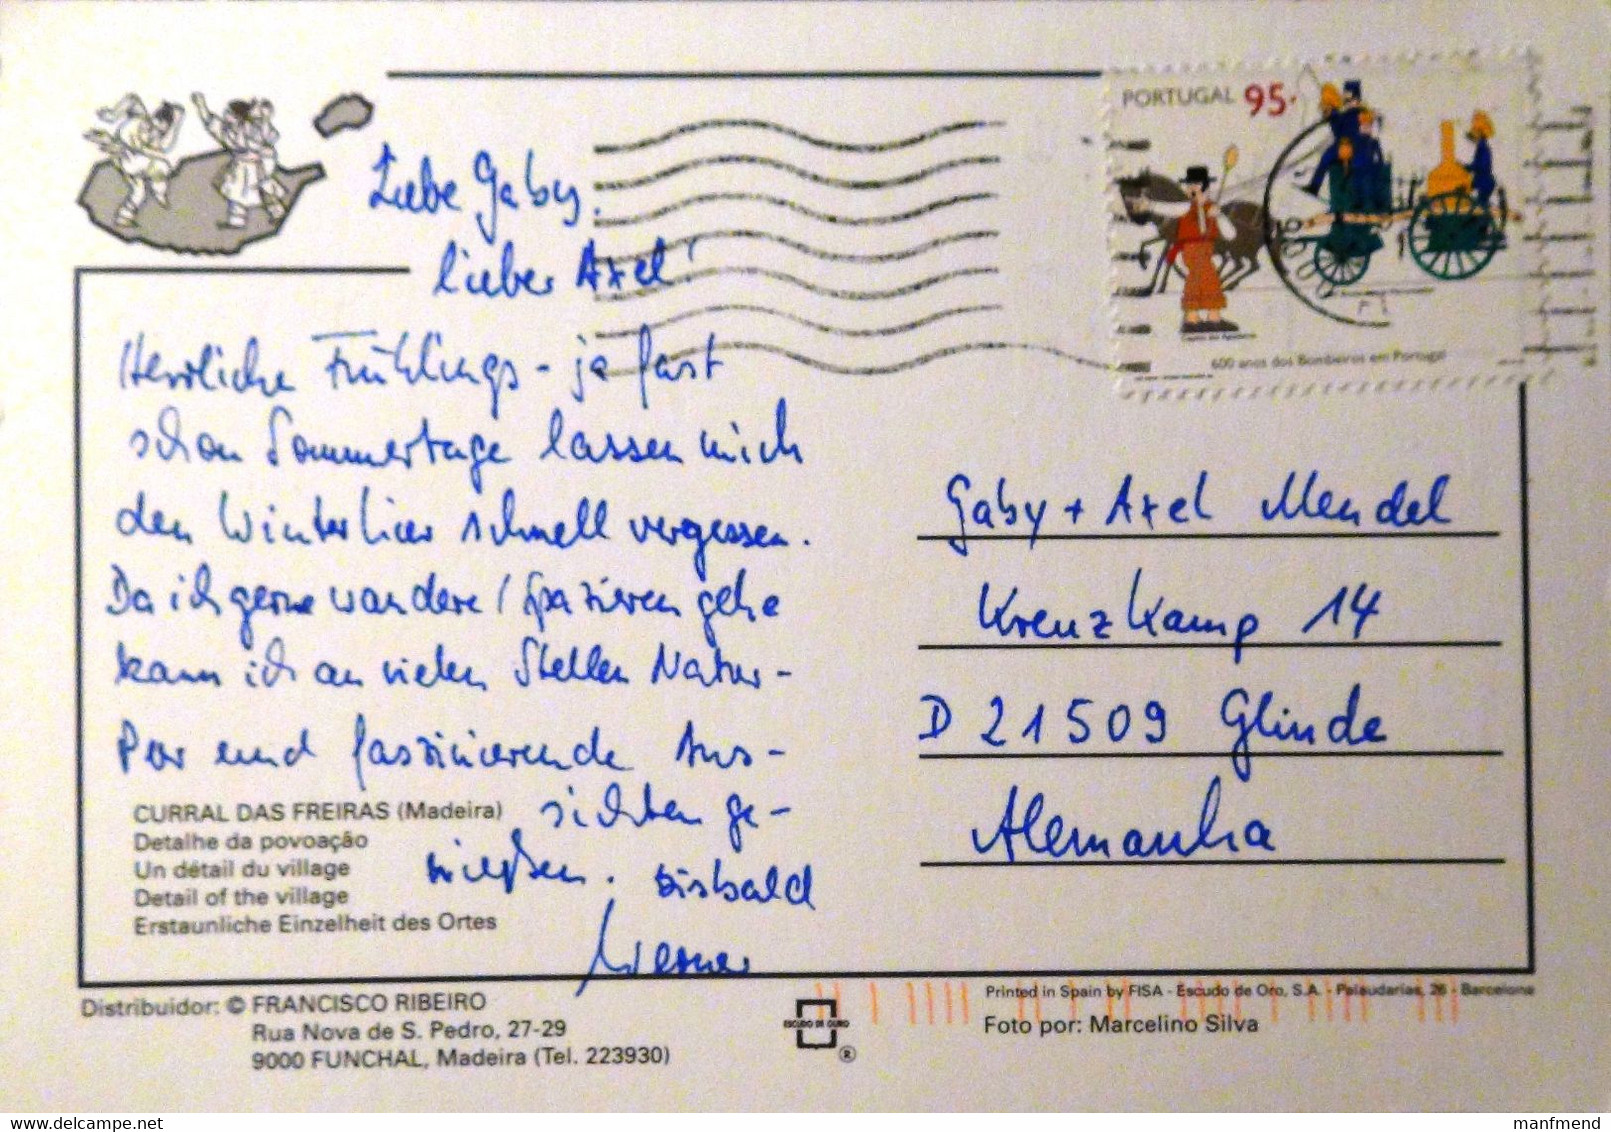 PORTUGAL 95.
600 anos dos Bombeiros em Portugal
Liebe Gaby,
lieber Axel!
Herrliche Frühlings- ja fast
schon Sommertage lassen mich
den Winter hier schnell vergessen.
Da ich gerne wandere / spazieren gehe
kann ich an vielen Stellen Natur-
Pur und faszinierende Aus-
sichten ge-
nießen. Bis bald
Werner
Gaby + Axel Mendel
Kreuzkamp 14
D 21509 Glinde
Alemanha
CURRAL DAS FREIRAS (Madeira)
Detalhe da povoação
Un détail du village
Detail of the village
Erstaunliche Einzelheit des Ortes
Distribuidor: © FRANCISCO RIBEIRO
Rua Nova de S. Pedro, 27-29
9000 FUNCHAL, Madeira (Tel. 223930)
ESCUDO DE OURO
®
Printed in Spain by FISA - Escudo de Oro, S.A. - Palaudarias, 26 - Barcelona
Foto por: Marcelino Silva
delcampe.net
manfmend